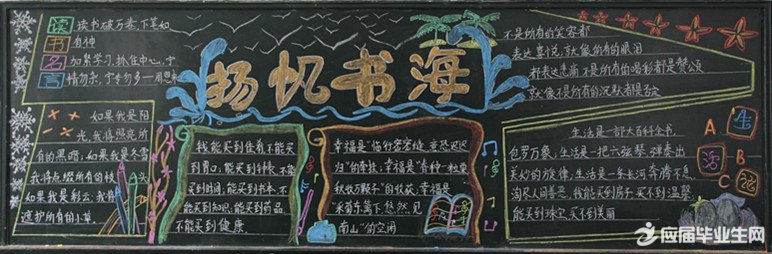 读书名言
读书破万卷,下笔如
有神
扬帆书海
不是所有的笑容都
表达喜悦,就像所有的眼泪
都表达悲痛 不是所有的喝彩都是赞颂
就像不是所有的沉默都是否定
如果我是阳
光,我将照亮所
有的黑暗,如果我是冬雪
如果我是彩云,我将
遮护所有的小草
我能买到住看不能买
到胃口,能买到钟表,不能
买到时间,能买到书本,不
能买到知识,能买到药品,
不能买到健康
幸福是“临行密密缝,意恐迟迟
归”的牵挂;幸福是“春种一粒粟
秋收万颗子”的收获,幸福是
采菊东篱下,悠然见
南山”的空闲
生活是一部大百科全书,
包罗万象,生活是一把六弦琴,弹奏出
美妙的旋律,生活是一条长河奔腾不息
淘尽人间善恶,我能买到房子买不到温馨
能买到珠宝买不到美丽
A
B
C
应届毕业生网